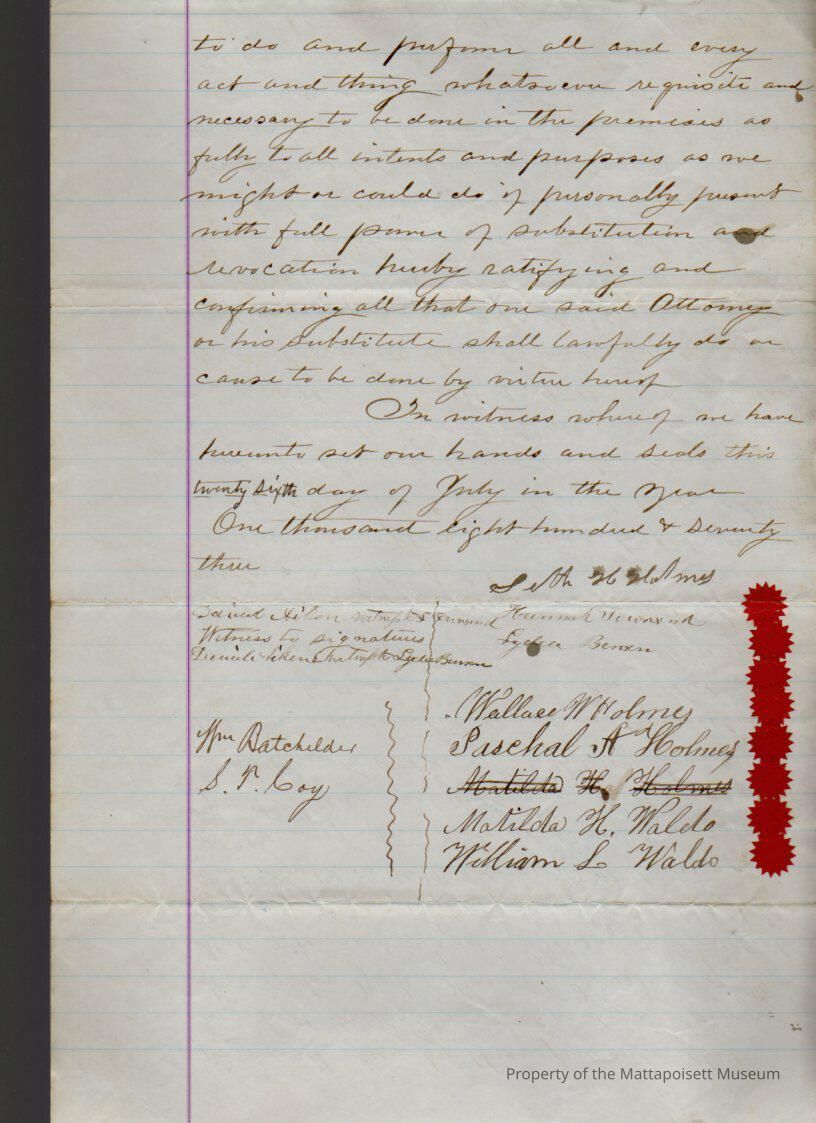 to do and perform all and every
act and thing whatsoever requisite and
necessary to be done in the premises as
fully to all intents and purposes as we
might or could do if personally present
with full power of substitution and
revocation hereby ratifying and
confirming all that our said Attorney
or his substitute shall lawfully do or
cause to be done by virtue hereof
In witness whereof we have
hereunto set our hands and seals this
twenty sixth day of July in the year
One thousand eight hundred & Seventy
three
Seth H Holmes
Witness to
Hannah
Witness to signatures
Lydia
Witness to Lydia
Wallace W Holmes
Wm Batchelder
Paschal A Holmes
S. P. Coy
Matilda H. Holmes
Matilda H. Waldo
William L Waldo
Property of the Mattapoisett Museum